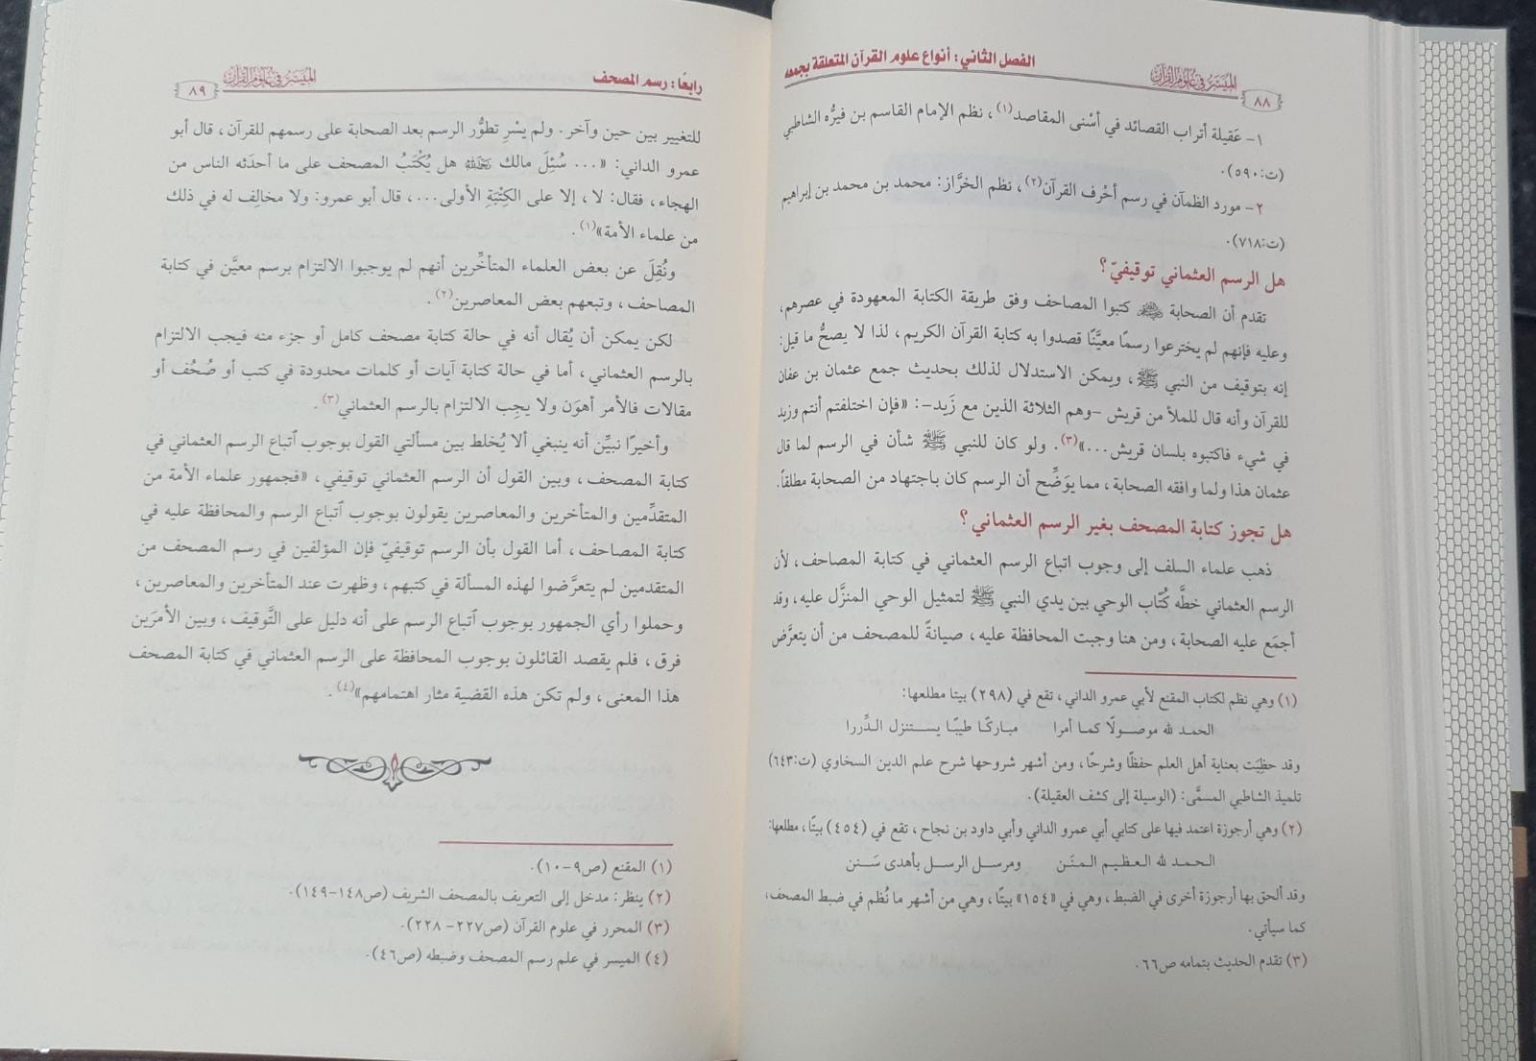 الميسر في علوم القرآن
٨٨
الفصل الثاني: أنواع علوم القرآن المتعلقة بجمعه
١- عَقيلة أتراب القصائد في أسْنى المقاصد(١)، نظم الإمام القاسم بن فيرُّه الشاطبي
(ت:٥٩٠).
٢- مورد الظمآن في رسم أحْرف القرآن(٢)، نظم الخرَّاز: محمد بن محمد بن إبراهيم
(ت:٧١٨).
هل الرسم العثماني توقيفيّ؟
تقدم أن الصحابة ﷺ كتبوا المصاحف وفق طريقة الكتابة المعهودة في عصرهم،
وعليه فإنهم لم يخترعوا رسمًا معيَّنًا قصدوا به كتابة القرآن الكريم، لذا لا يصحُّ ما قيل:
إنه بتوقيف من النبي ﷺ، ويمكن الاستدلال لذلك بحديث جمع عثمان بن عفان
للقرآن وأنه قال للملأ من قريش -وهم الثلاثة الذين مع زَيد-: «فإن اختلفتم أنتم وزيد
في شيء فاكتبوه بلسان قريش...»(٣). ولو كان للنبي ﷺ شأن في الرسم لما قال
عثمان هذا ولما وافقه الصحابة، مما يوَضِّح أن الرسم كان باجتهاد من الصحابة مطلقًا.
هل تجوز كتابة المصحف بغير الرسم العثماني؟
ذهب علماء السلف إلى وجوب اتباع الرسم العثماني في كتابة المصاحف، لأن
الرسم العثماني خطَّه كُتّاب الوحي بين يدي النبي ﷺ لتمثيل الوحي المنزَّل عليه، وقد
أجمَع عليه الصحابة، ومن هنا وجبت المحافظة عليه، صيانةً للمصحف من أن يتعرَّض
(١) وهي نظم لكتاب المقنع لأبي عمرو الداني، تقع في (٢٩٨) بيتا مطلعها:
الحمد لله موصولًا كما أمرا مباركًا طيبًا يستنزل الدِّررا
وقد حظِيَت بعناية أهل العلم حفظًا وشرحًا، ومن أشهر شروحها شرح علم الدين السخاوي (ت:٦٤٣)
تلميذ الشاطبي المسمَّى: (الوسيلة إلى كشف العقيلة).
(٢) وهي أرجوزة اعتمد فيها على كتابي أبي عمرو الداني وأبي داود بن نجاح، تقع في (٤٥٤) بيتًا، مطلعها:
الحمد لله العظيم المنَن ومرسل الرسل بأهدى سَنن
وقد ألحق بها أرجوزة أخرى في الضبط، وهي في «١٥٤» بيتًا، وهي من أشهر ما نُظم في ضبط المصحف،
كما سيأتي.
(٣) تقدم الحديث بتمامه ص٦٦.
رابعًا: رسم المصحف
الميسر في علوم القرآن
٨٩
للتغيير بين حين وآخر. ولم يسْرِ تطوُّر الرسم بعد الصحابة على رسمهم للقرآن، قال أبو
عمرو الداني: «... سُئِلَ مالك رحمه الله هل يُكْتَبُ المصحف على ما أحدَثه الناس من
الهجاء، فقال: لا، إلا على الكِتْبَةِ الأولى...، قال أبو عمرو: ولا مخالِف له في ذلك
من علماء الأمة»(١).
ونُقِلَ عن بعض العلماء المتأخِّرين أنهم لم يوجبوا الالتزام برسم معيَّن في كتابة
المصاحف، وتبعهم بعض المعاصرين(٢).
لكن يمكن أن يُقال أنه في حالة كتابة مصحف كامل أو جزء منه فيجب الالتزام
بالرسم العثماني، أما في حالة كتابة آيات أو كلمات محدودة في كتب أو صُحُف أو
مقالات فالأمر أهوَن ولا يجِب الالتزام بالرسم العثماني(٣).
وأخيرًا نبيِّن أنه ينبغي ألا يُخلط بين مسألتي القول بوجوب ٱتباع الرسم العثماني في
كتابة المصحف، وبين القول أن الرسم العثماني توقيفي، «فجمهور علماء الأمة من
المتقدِّمين والمتأخرين والمعاصرين يقولون بوجوب ٱتباع الرسم والمحافظة عليه في
كتابة المصاحف، أما القول بأن الرسم توقيفيّ فإن المؤلفين في رسم المصحف من
المتقدمين لم يتعرَّضوا لهذه المسألة في كتبهم، وظهرت عند المتأخرين والمعاصرين،
وحملوا رأي الجمهور بوجوب ٱتباع الرسم على أنه دليل على التَّوقيف، وبين الأمرَين
فرق، فلم يقصد القائلون بوجوب المحافظة على الرسم العثماني في كتابة المصحف
هذا المعنى، ولم تكن هذه القضية مثار اهتمامهم»(٤).
(١) المقنع (ص٩-١٠).
(٢) ينظر: مدخل إلى التعريف بالمصحف الشريف (ص١٤٨-١٤٩).
(٣) المحرر في علوم القرآن (ص٢٢٧- ٢٢٨).
(٤) الميسر في علم رسم المصحف وضبطه (ص٤٦).